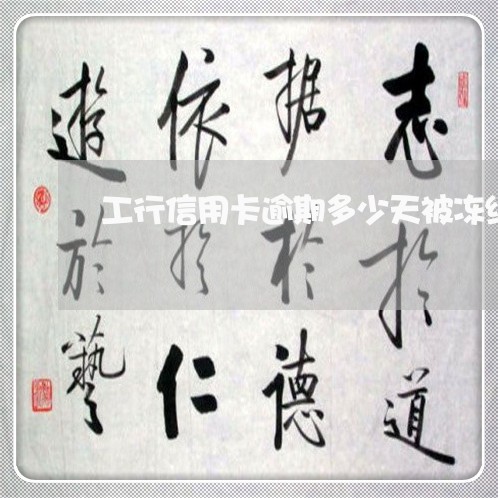 志於道
据於德
依於仁
遊於藝
工行信用卡逾期多少天被冻